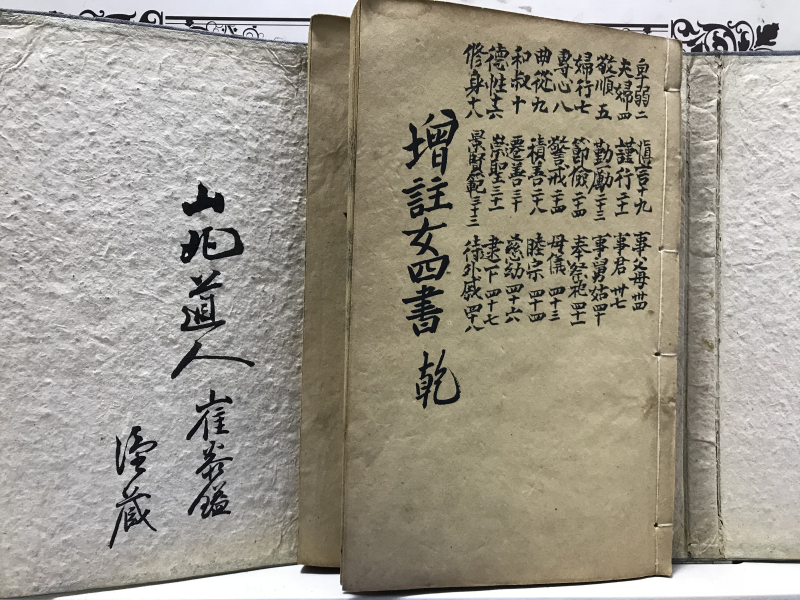 卑弱二
夫婦四
敬順五
婦行七
專心八
曲從九
和叔十
德性十六
修身十八
愼言十九
謹行二十一
勤勵二十三
節儉二十四
警戒二十四
積善二十八
遷善三十
崇聖三十一
景賢範三十三
事父母卅四
事君卅七
事舅姑四十
奉祭祀四十一
母儀四十三
睦宗四十四
慈幼四十六
逮下四十七
待外戚四十八
增註女四書 乾
山兆道人 崔
藏